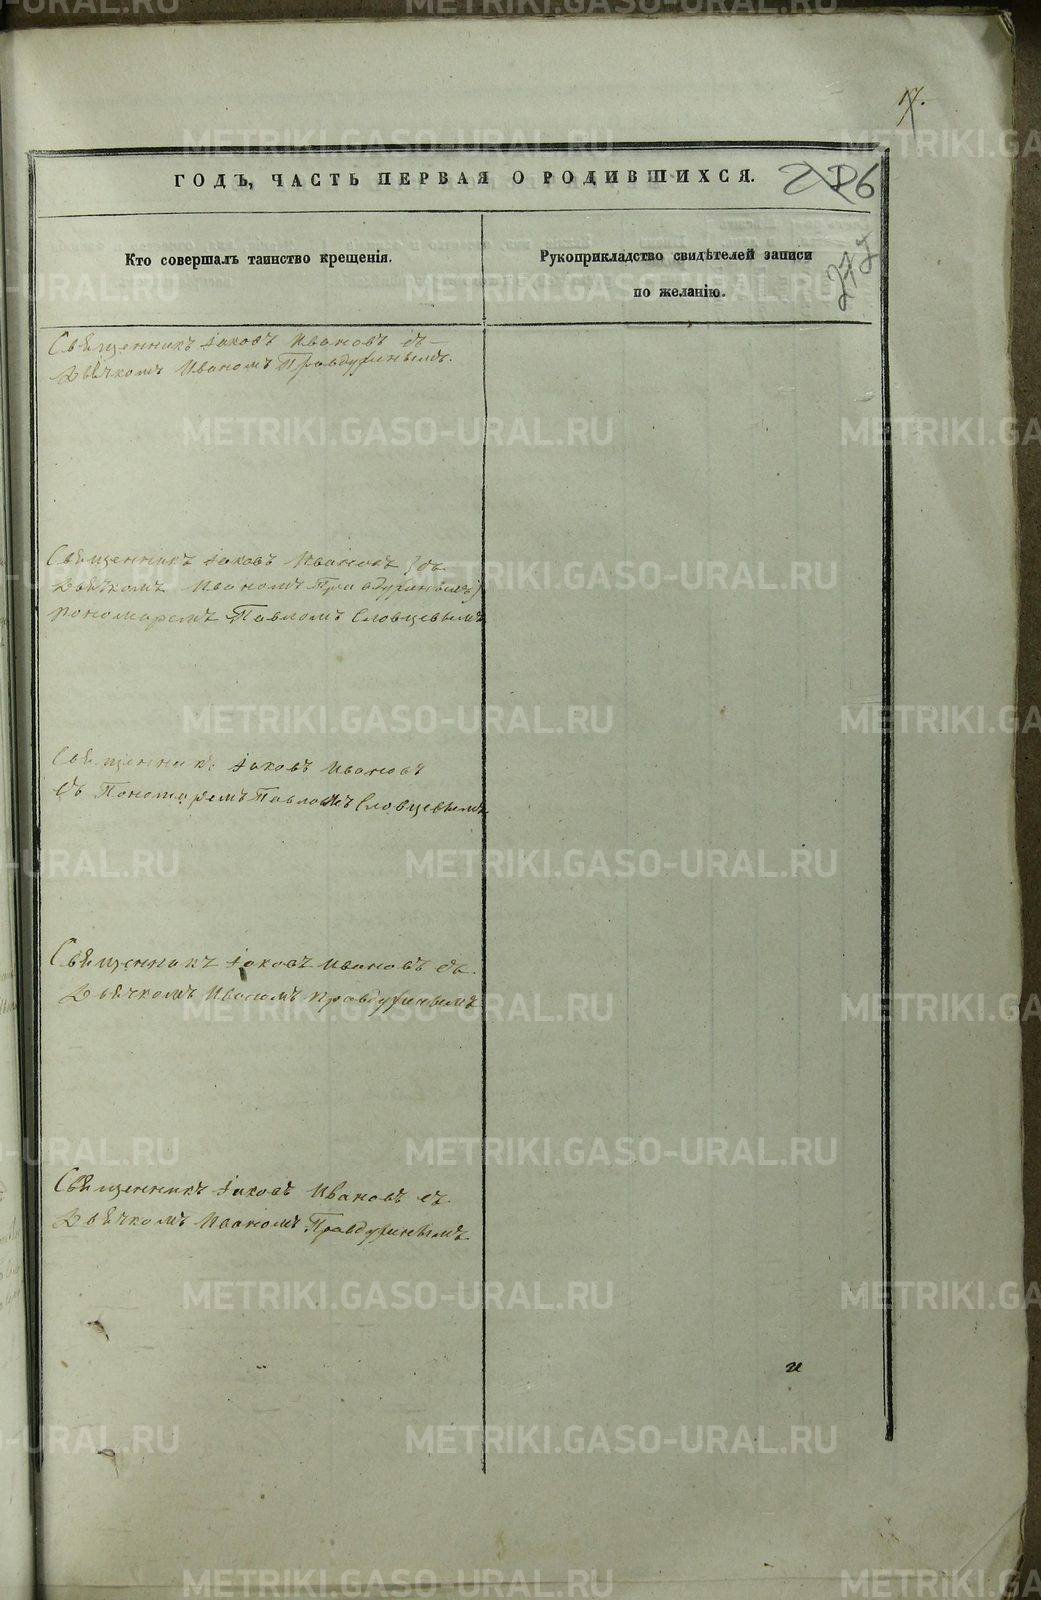 17.
ГОДЪ, ЧАСТЬ ПЕРВАЯ О РОДИВШИХСЯ.
277
Кто совершалъ таинство крещенія.
Рукоприкладство свидѣтелей записи
по желанію.
Священникъ Іаковъ Ивановъ съ
Дьячкомъ Иваномъ Правдухинымъ.
Священникъ Іаковъ Ивановъ съ
Дьячкомъ Иваномъ Правдухинымъ
Пономаремъ Павломъ Словцевымъ
Священникъ Іаковъ Ивановъ
съ Пономаремъ Павломъ Словцевымъ
Священникъ Іаковъ Ивановъ съ
Дьячкомъ Иваномъ Правдухинымъ
Священникъ Іаковъ Ивановъ съ
Дьячкомъ Иваномъ Правдухинымъ
METRIKI.GASO-URAL.RU